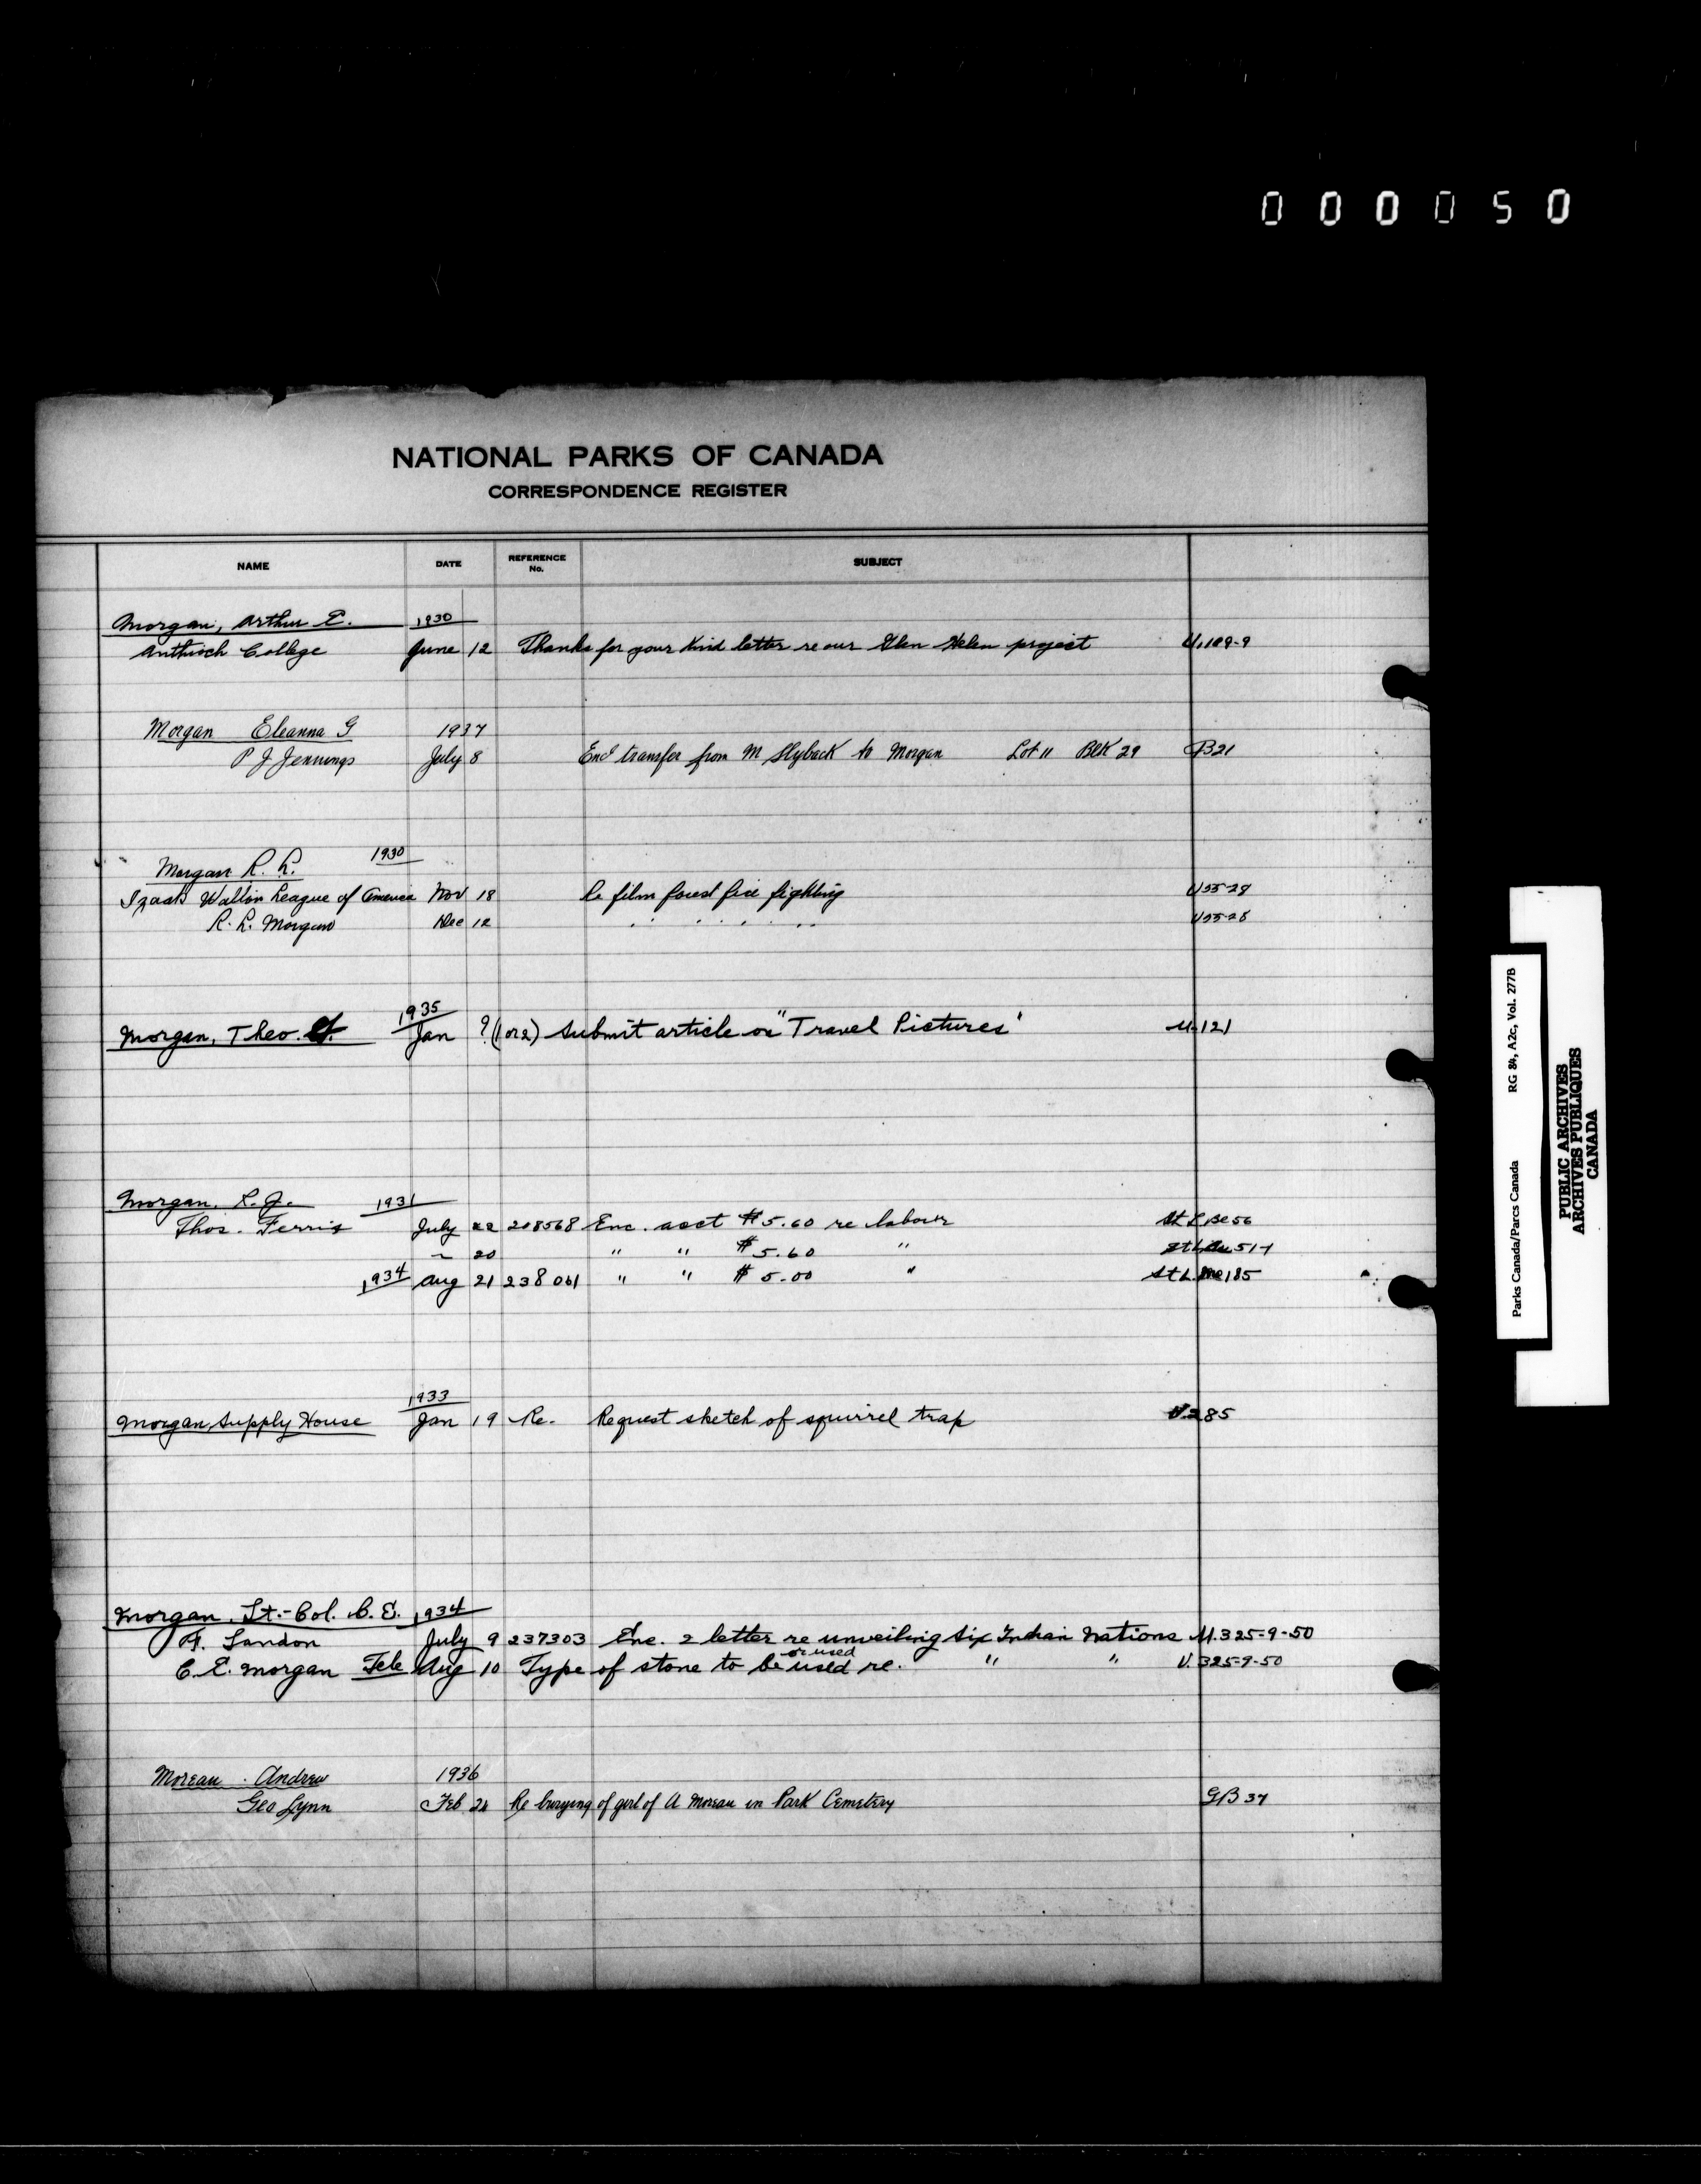 000050
NATIONAL PARKS OF CANADA
CORRESPONDENCE REGISTER
NAME DATE REFERENCE No. SUBJECT
Morgan, Arthur E. 1930
Anthioch College June 12 Thanks for your kind letter re our Glen Helen project U.109-9
Morgan Eleanna G 1937
P J Jennings July 8 Encl transfer from M Slyback to Morgan Lot 11 Blk 29 B21
Morgan R. L. 1930
Izaak Walton League of America Nov 18 Re film forest fire fighting U55-28
R. L. Morgan Dec 12 " " " " U55-28
1935
Morgan, Theo. Jan ? (1 or 2) Submit article on "Travel Pictures" U.121
Morgan, R. J. 1931
Thos. Ferris July 22 208568 Enc. acct $5.60 re labour St L Be56
" 20 " " $5.60 " St L 51-1
1934 Aug 21 238061 " " $5.00 " St L. Me185
1933
Morgan Supply House Jan 19 Re. Request sketch of squirrel trap U.285
Morgan, Lt.-Col. C. E. 1934
F. Landon July 9 237303 Enc. 2 letter re unveiling Six Indian Nations U.325-9-50
C. E. Morgan Tele Aug 10 Type of stone to be used re. " " U.325-9-50
or used
Moreau. Andrew 1936
Geo Lynn Feb 24 Re burying of girl of A Moreau in Park Cemetery GB37
Parks Canada/Parcs Canada RG 84, A2c, Vol. 2778
PUBLIC ARCHIVES
ARCHIVES PUBLIQUES
CANADA